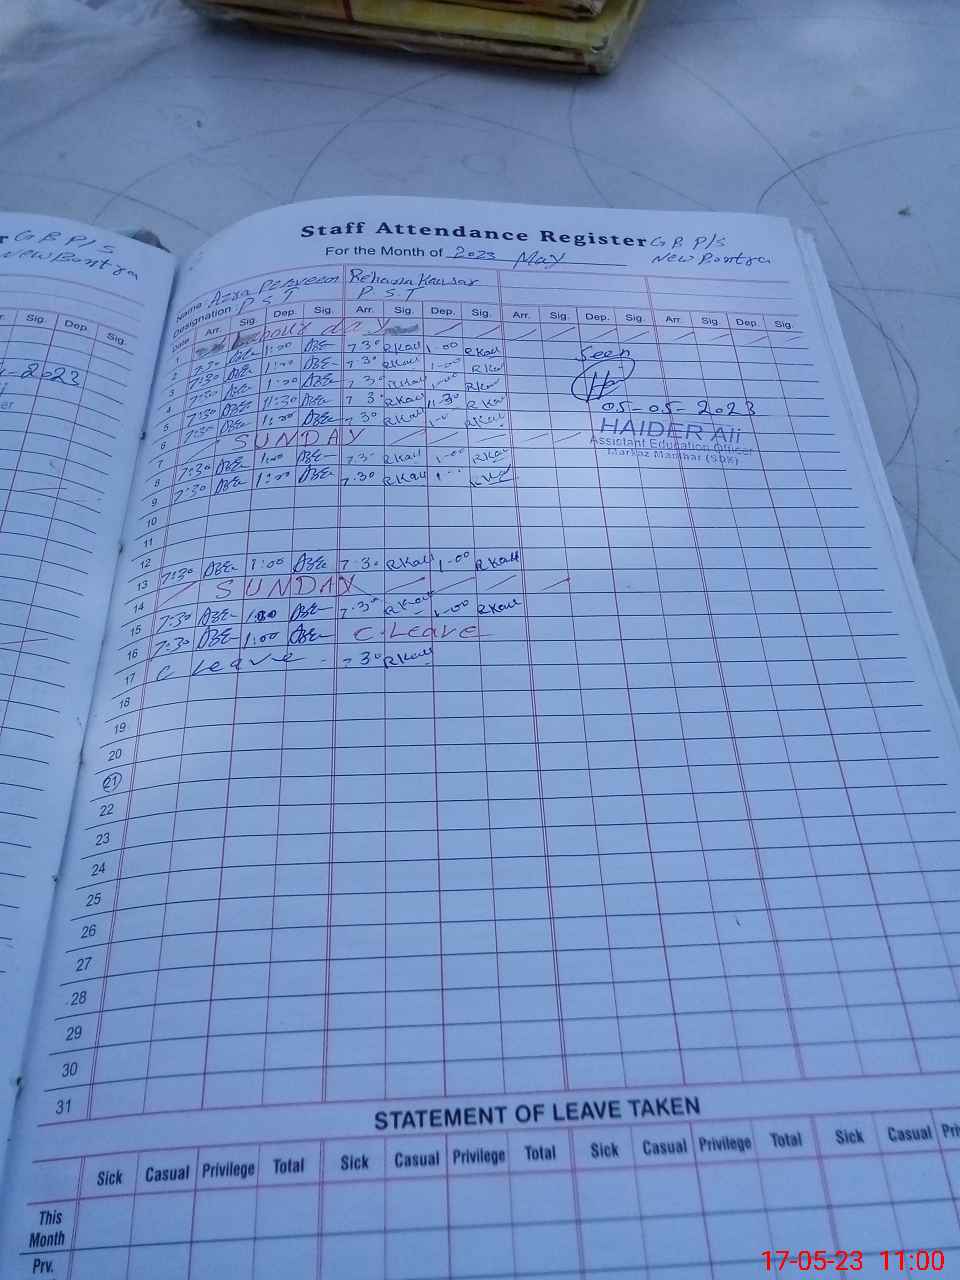 Staff Attendance Register G B P/S
For the Month of 2023 May New Bontra
G B P/S
New Bontra
Name Azra Perveen Rehana Kausar
Designation P S T P. S. T
Date Arr. Sig. Dep. Sig. Arr. Sig. Dep. Sig. Arr. Sig. Dep. Sig. Arr. Sig. Dep. Sig.
Sig. Dep. Sig.
1 day
2 7:30 1:00 7.30 RKau 1-00 RKau
3 7:30 1:00 7.30 RKau 1-00 RKau
4 7:30 1:00 7.30 RKau 1-00 RKau
5 7:30 11:30 7.30 RKau 11.30 RKau
6 7:30 1:00 7.30 RKau 1-00 RKau
7 SUNDAY
8 7:30 1:00 7.30 RKau 1-00 RKau
9 7:30 1:00 7.30 RKau RKau
10
11
12
13 7:30 1:00 7.30 RKau 1-00 RKau
14 SUNDAY
15 7:30 1:00 7.30 RKau 1-00 RKau
16 7:30 1:00 C. Leave
17 C Leave 7.30 RKau
18
19
20
21
22
23
24
25
26
27
28
29
30
31
Seen
05-05-2023
HAIDER Ali
Assistant Education Officer
2023
STATEMENT OF LEAVE TAKEN
Sick Casual Privilege Total Sick Casual Privilege Total Sick Casual Privilege Total Sick Casual Pri
This
Month
Prv.
17-05-23 11:00